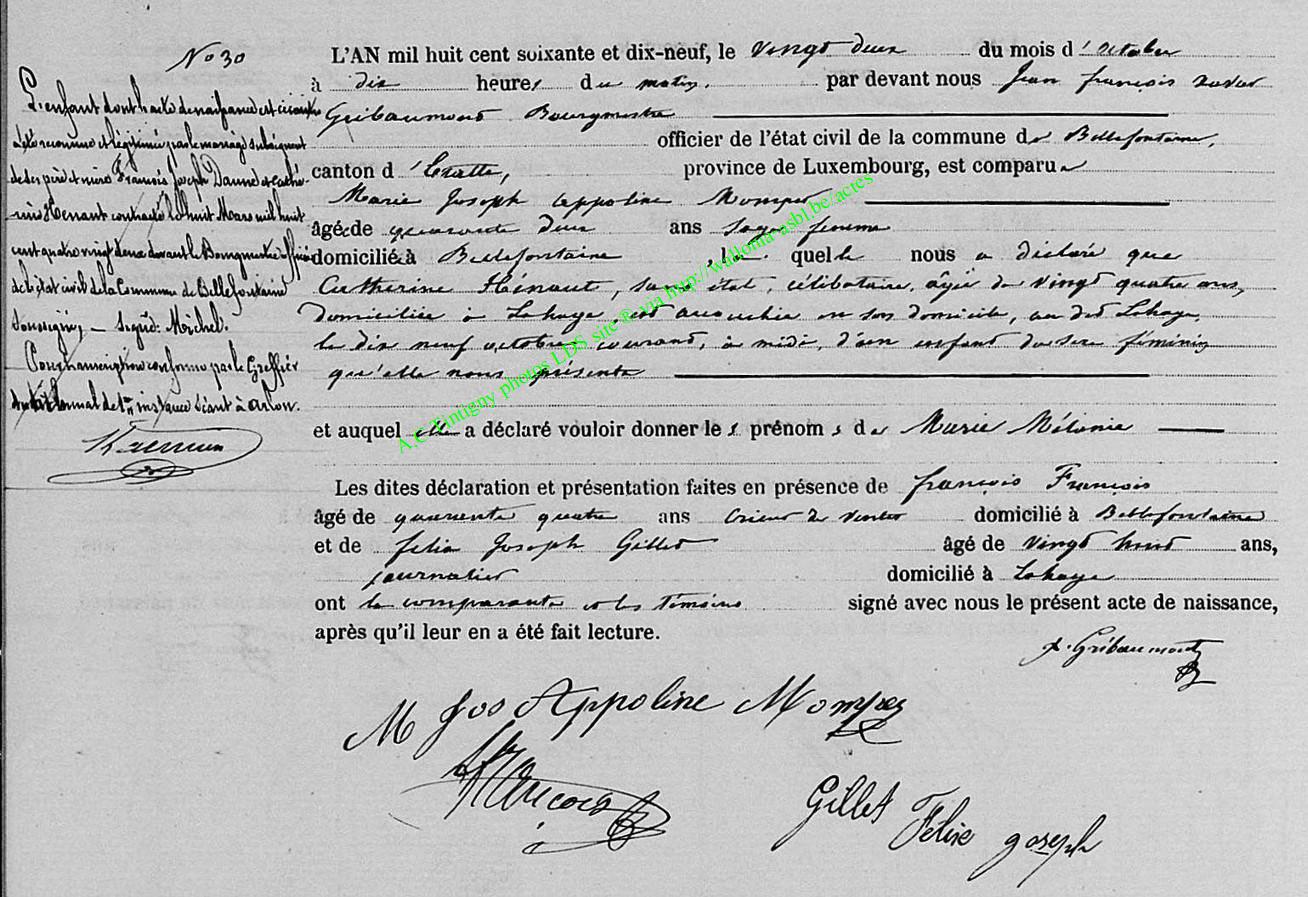 No 30
L'enfant dont l'acte de naissance est ci contre
a été reconnu et légitimé par le mariage subséquent
de ses père et mère François Joseph Danne et Cathé-
rine Henaut contracté le huit Mars mil huit
cent quatre vingt deux devant le Bourgmestre officier
de l'état civil de la Commune de Bellefontaine
soussigné, — Signé: Michel.
Pour transcription conforme par le Greffier
du tribunal de 1re instance séant à Arlon.
L'AN mil huit cent soixante et dix-neuf, le vingt deux du mois d'octobre
à dix heures du matin. par devant nous Jean françois xavier
Gribaumont Bourgmestre
officier de l'état civil de la commune de Bellefontaine,
canton d'Etalle, province de Luxembourg, est comparue
Marie Joseph Appoline Mompez
âgée de quarante deux ans sage femme
domiciliée à Bellefontaine, laquelle nous a déclaré que
Catherine Hénaut, sans état, célibataire, âgée de vingt quatre ans,
domiciliée à Lahaye, est accouchée en son domicile, au dit Lahaye,
le dix neuf octobre courant, à midi, d'un enfant du sexe féminin
qu'elle nous présente
et auquel elle a déclaré vouloir donner les prénoms de Marie Mélanie
Les dites déclaration et présentation faites en présence de françois François
âgé de quarente quatre ans crieur de ventes domicilié à Bellefontaine
et de Felix Joseph Gillet âgé de vingt huit ans,
journalier domicilié à Lahaye
ont la comparante et les témoins signé avec nous le présent acte de naissance,
après qu'il leur en a été fait lecture.
x. Gribaumont
M Jos Appoline Mompez
François
Gillet Felix joseph
A.C Tintigny photos LDS site ® via http://wallonia-asbl.be/actes